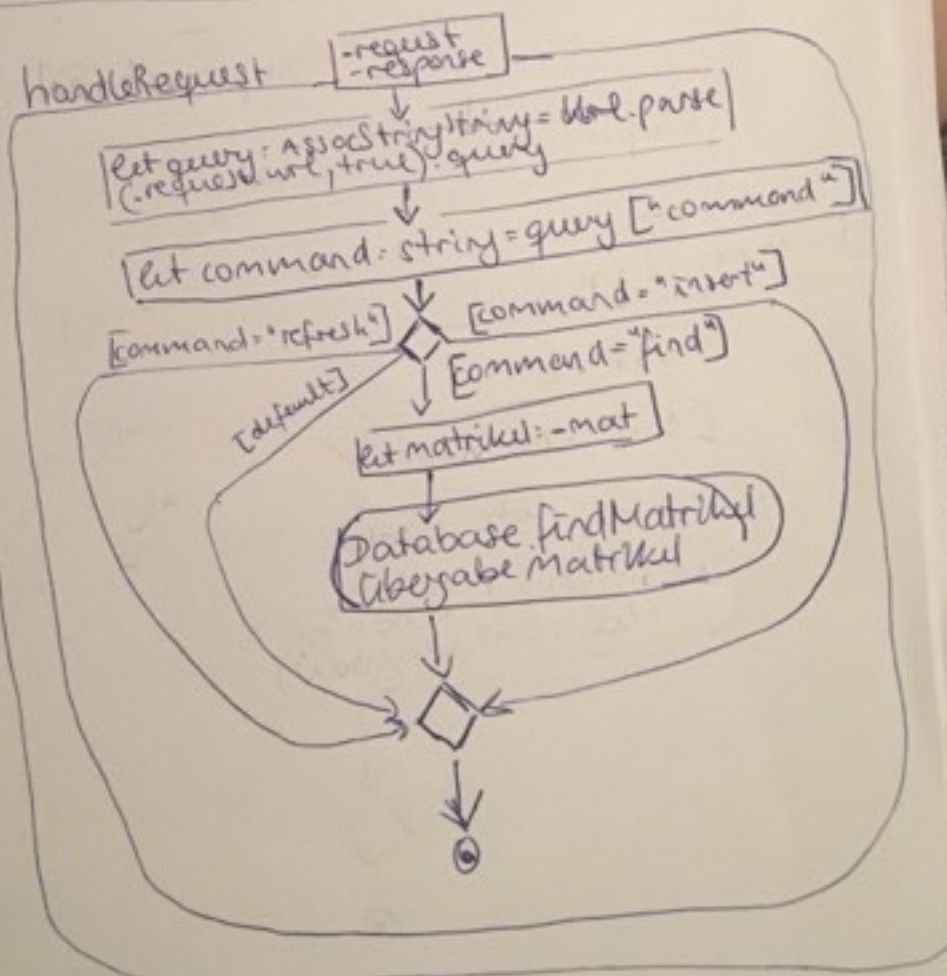 handleRequest
-request
-response
let query: AssocStringString = Url.parse
(-request.url, true).query
let command: string = query ["command"]
[command="refresh"]
[command="insert"]
[default]
[command="find"]
let matrikel: -mat
Database.findMatrikel
Übergabe Matrikel